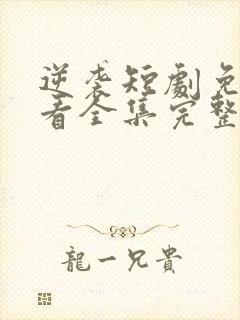 逆袭短劇免
看全集完整
龍一兄貴